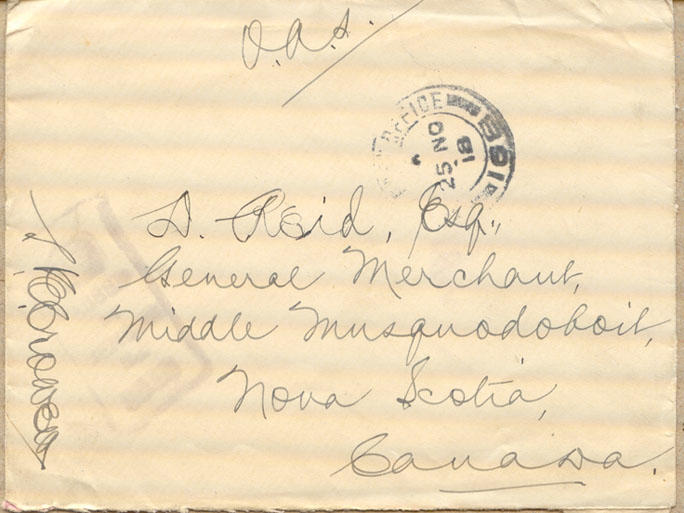 O.A.S.
OFFICE
25 NO
18
D. Reid, Esq.,
General Merchant,
Middle Musquodoboit,
Nova Scotia,
Canada.